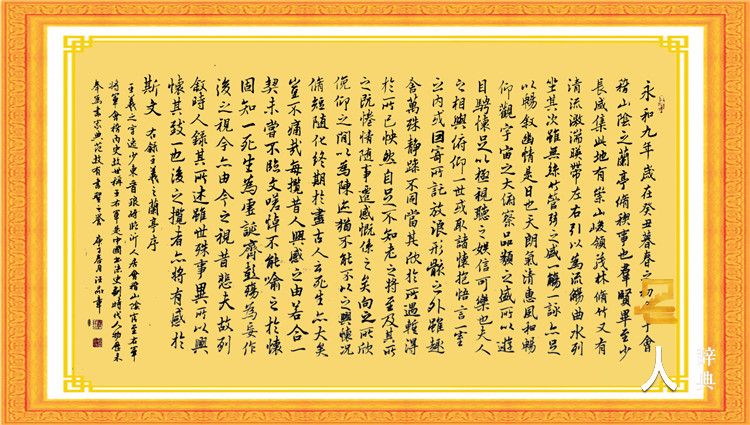 永和九年歲在癸丑暮春之初于會
稽山陰之蘭亭脩稧事也羣賢畢至少
長咸集此地有崇山峻領茂林脩竹又有
清流激湍暎帶左右引以為流觴曲水列
坐其次雖無絲竹管弦之盛一觴一詠亦足
以暢叙幽情是日也天朗氣清惠風和暢
仰觀宇宙之大俯察品類之盛所以遊
目騁懷足以極視聽之娛信可樂也夫人
之相與俯仰一世或取諸懷抱悟言一室
之內或因寄所託放浪形骸之外雖趣
舍萬殊靜躁不同當其欣於所遇暫得
於己怏然自足不知老之將至及其所
之既惓情隨事遷感慨係之矣向之所欣
俛仰之間以為陳迹猶不能不以之興懷況
脩短隨化終期於盡古人云死生亦大矣
豈不痛哉每攬昔人興感之由若合一
契未嘗不臨文嗟悼不能喻之於懷
固知一死生為虛誕齊彭殤為妄作
後之視今亦由今之視昔悲夫故列
叙時人錄其所述雖世殊事異所以興
懷其致一也後之攬者亦將有感於
斯文 右錄王羲之蘭亭序
王羲之字逸少東晉琅琊臨沂人居會稽山陰官至右軍
將軍會稽內史故世稱王右軍是中國書法史劃時代人物歷來
奉為書宗典範故有書聖之譽 庚子
名人
辞典